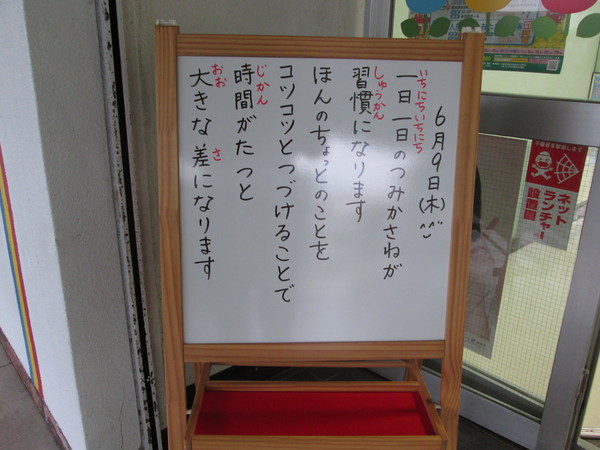 6月9日(木)
一日一日のつみかさねが
いちにちいちにち
習慣になります
しゅうかん
ほんのちょっとのことを
コツコツとつづけることで
時間がたつと
じかん
大きな差になります
おお
さ
不審者を撃退します
ネット
ランチャー
設置園